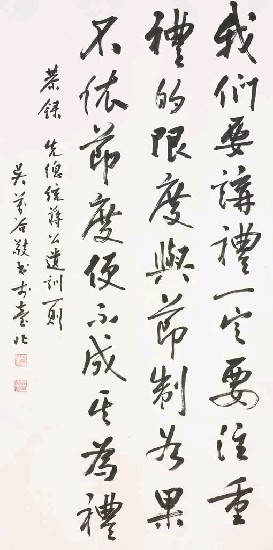 我們要講禮一定要注重
禮的限度與節制如果
不依節度便不成其為禮
恭錄 先總統蔣公遺訓一則
吳萬谷敬書於臺北